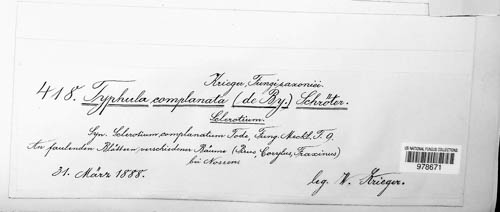 Krieger, Fungi saxonici.
418. Typhula complanata (de By.) Schröter.
Sclerotium.
Syn. Sclerotium complanatum Tode, Fung. Meckl. T. 9.
An faulenden Blättern verschiedener Bäume (Corylus, Fraxinus)
bei Nossen
31. März 1888.
leg. W. Krieger.
US NATIONAL FUNGUS COLLECTIONS
978671